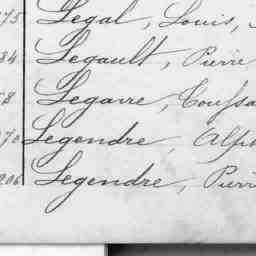 75 Legal, Louis,
84 Legault, Pierre
58 Legare, Toussa
70 Legendre, Alph
206 Legendre, Pierr